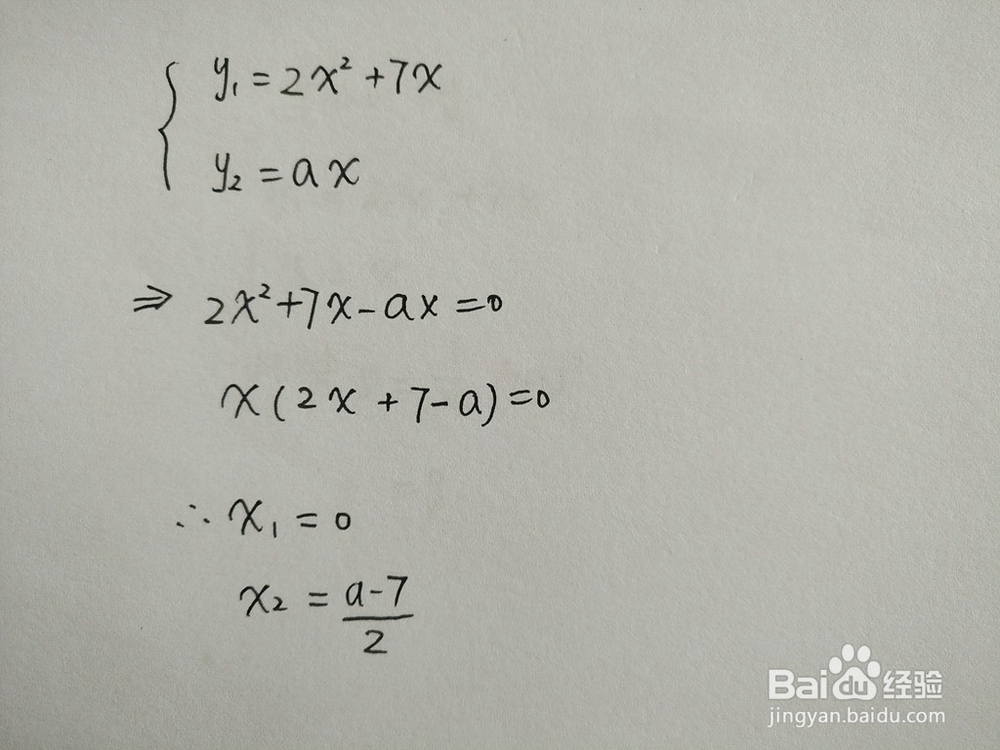 y₁ = 2x² + 7x
y₂ = ax
⇒ 2x² + 7x - ax = 0
x(2x + 7 - a) = 0
∴ x₁ = 0
x₂ = (a-7)/2
Bai du 经验
jingyan.baidu.com